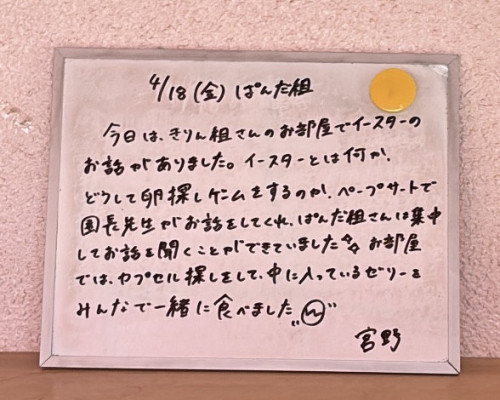 4/18(金)ぱんだ組
今日は、きりん組さんのお部屋でイースターの
お話がありました。イースターとは何か、
どうして卵探しゲームをするのか、ペープサートで
園長先生がお話をしてくれ、ぱんだ組さんは集中
してお話を聞くことができていました☆☆ お部屋
では、カプセル探しをして、中に入っているゼリーを
みんなで一緒に食べました
宮野